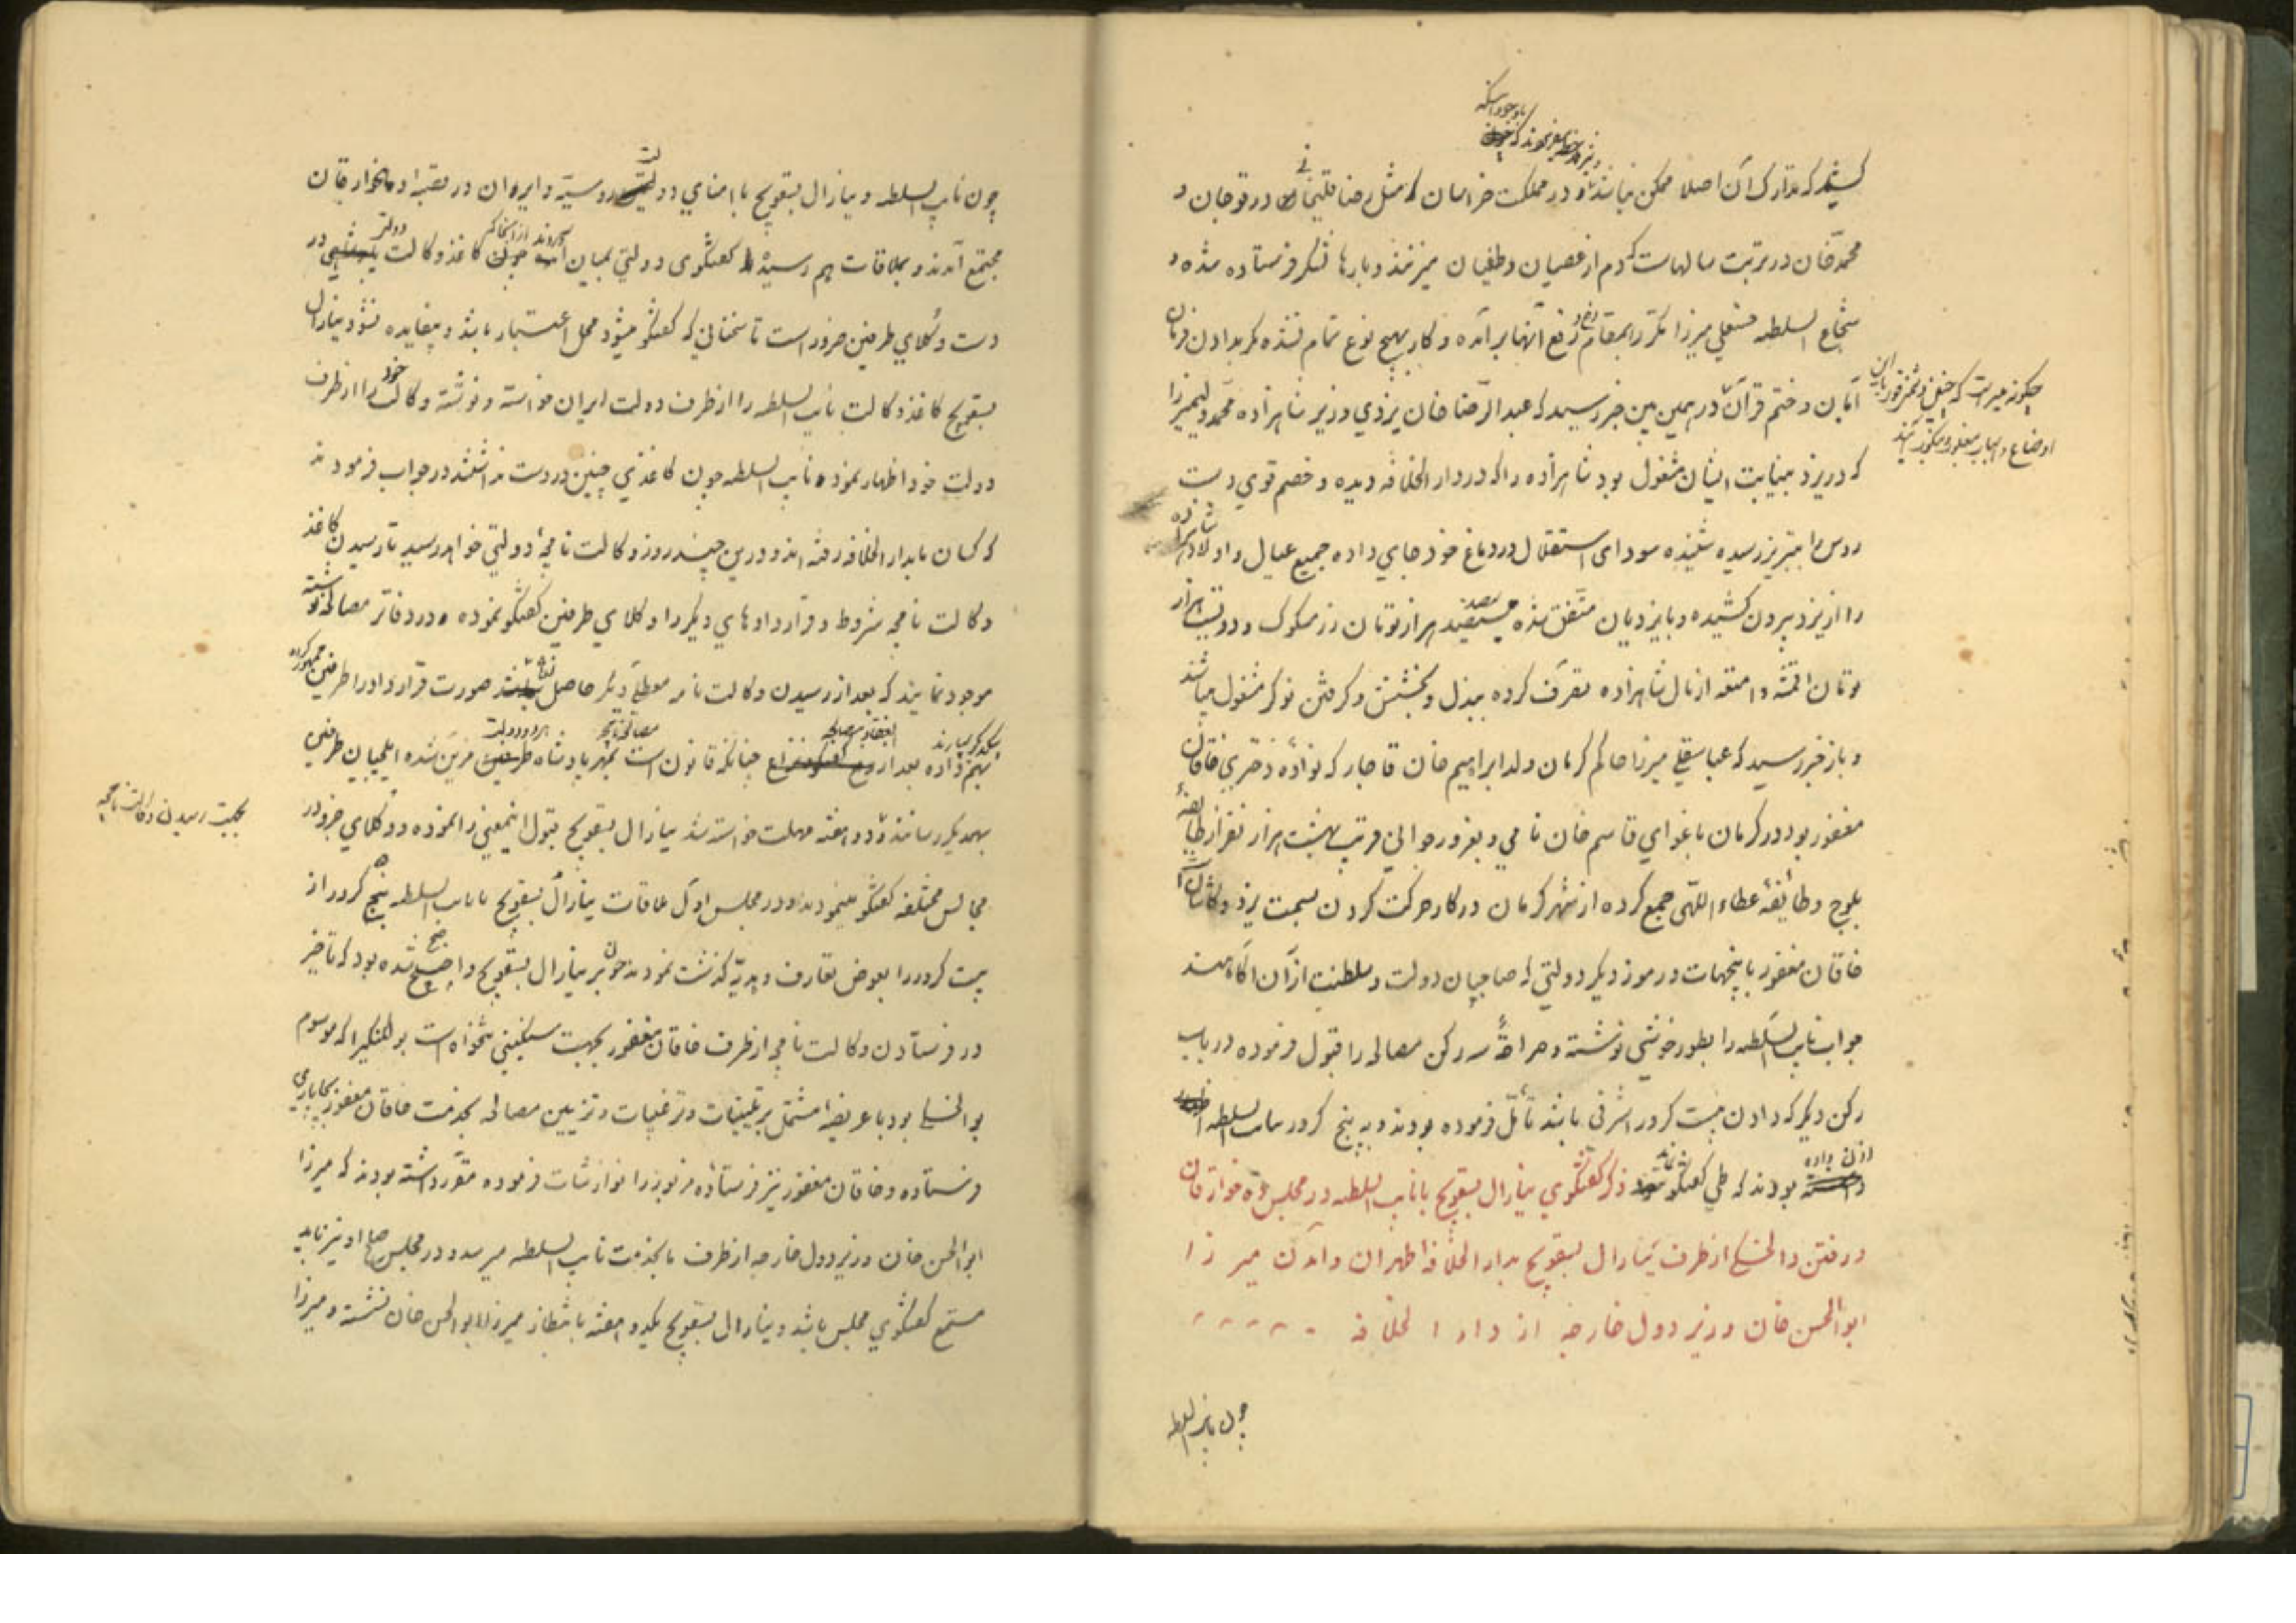 باوجود اینکه
کشید که تدارک آن اصلا ممکن نباشد و در مملکت خراسان که مثل رضا قلیخان در قوچان و
محمدخان در تربت سالهاست که دم از عصیان و طغیان میزنند و بارها لشکر فرستاده شده و
شجاع السلطه حسنعلی میرزا مکرر بمقام رفع آنها برآمده و کار بهیچ نوع تمام نشده مگر بدادن فرمان
امان و ختم قرآن در همین بین خبر رسید که عبد الرضا خان یزدی وزیر شاهزاده محمد ولیمیرزا
که در یزد بنیابت ایشان مشغول بود شاهزاده را که در دار الخلافه دیده و خصم قوی دست
روس را بتبریز رسیده شنیده سودای استقلال در دماغ خود جای داده جمیع عیال و اولاد شاهزاده
را از یزد بیرون کشیده و با یزدیان متفق شده هزار تومان زر مسکوک و دویست هزار
تومان اقمشه و امتعه از مال شاهزاده تصرف کرده ببذل و بخشش و گرفتن نوکر مشغول میباشد
و باز خبر رسید که عباسقلی میرزا حاکم کرمان ولد ابراهیم خان قاجار که نواده دختری خاقان
مغفور بود در کرمان باغوای قاسم خان نامی و بغرور جوانی قریب بهشت هزار نفر از طایفه
بلوچ و طائفه عطاء اللهی جمع کرده از شهر کرمان در کار حرکت کردن بسمت یزد و کاشان
خاقان مغفور باینجهات و رموز دیگر دولتی که صاحبان دولت و سلطنت از آن آگاه هستند
جواب نایب السلطه را بطور خوشی نوشته و صراحة سه رکن مصالحه را قبول فرموده در باب
رکن دیگر که دادن بیست کرور اشرفی باشد تأمل فرموده بودند و به پنج کرور نایب السلطه را
اذن داده
بودند که طی گفتگو نماید ذکر گفتگوی ینارال بسقویچ با نایب السلطه در مجلس ده خوارقان
و رفتن والخسکی از طرف ینارال بسقویچ بدار الخلافه طهران و آمدن میرزا
ابوالحسن خان وزیر دول خارجه از دار الخلافه
چگونه میسر است که چنین دشمن قوی را باین
اوضاع و اسباب مغلوب و منکوب نمایند
چون نایب السلطه
چون نایب السلطه و ینارال بسقویچ با امنای دولت روسیه و ایران در قصبه ده خوارقان
مجتمع آمدند و بملاقات هم رسیده گفتگوی دولتی بمیان آوردند از آنجا که کاغذ وکالت دولتی در
دست وکلای طرفین ضرور است تا سخنانی که گفتگو میشود محل اعتبار باشد و بیفایده نشود ینارال
بسقویچ کاغذ وکالت نایب السلطه را از طرف دولت ایران خواسته و نوشته وکالت خود را از طرف
دولت خود اظهار نموده نایب السلطه چون کاغذی چنین در دست نداشتند در جواب فرمودند
که کسان ما بدار الخلافه رفته اند و درین چند روز وکالت نامچه دولتی خواهد رسید تا رسیدن کاغذ
وکالت نامچه شروط و قراردادهای دیگر را وکلای طرفین گفتگو نموده و در دفاتر مصالحه نوشته
موجود نمایند که بعد از رسیدن وکالت نامه معطلی دیگر حاصل نشده باشد صورت قرارداد را طرفین ممهور کرده
بیکدیگر بسپارند
بهم داده بعد از انعقاد مصالحه چنانکه قانون است مصالحه نامچه بمهر پادشاه هر دو دولت مزین شده ایلچیان طرفین
بهمدیگر رسانند و دو هفته مهلت خواسته شد ینارال بسقویچ قبول اینمعنی را نموده و وکلای جزو در
بجهت رسیدن وکالت نامچه
مجالس مختلفه گفتگو مینمودند و در مجلس اول ملاقات ینارال بسقویچ با نایب السلطه پنج کرور از
بیست کرور را بعوض تعارف و هدیه گذشت نمودند چون بر ینارال بسقویچ واضح شده بود که تأخیر
در فرستادن وکالت نامچه از طرف خاقان مغفور بجهت سنگینی تنخواه است بوالخسکی را که موسوم
بوالخسکی بود با عریضه مشتمل بر تلیینات و ترغیبات و تزیین مصالحه بخدمت خاقان مغفور بچاپاری
فرستاده و خاقان مغفور نیز فرستاده مزبور را نوازشات فرموده مقرر داشته بودند که میرزا
ابوالحسن خان وزیر دول خارجه از طرف ما بخدمت نایب السلطه میرسد و در مجلس صلح او نیز باید
مستمع گفتگوی مجلس باشد و ینارال بسقویچ یکدو هفته بانتظار میرزا ابوالحسن خان نشسته و میرزا